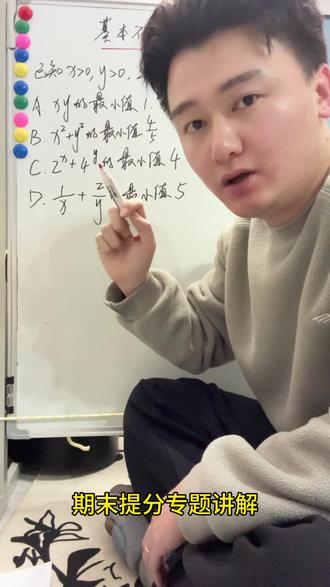 基本不
已知x>0, y>0,
A. xy的最小值1.
B. x²+y²的最小值4/5
C. 2ˣ+4ʸ的最小值4
D. 1/x+2/y 最小值5
期末提分专题讲解